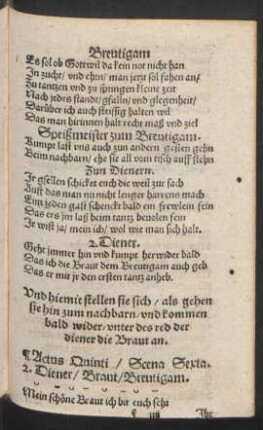 Breutigam
Es sol ob Gottwil da kein not nicht han
In zucht/ vnd ehrn/ man jetzt sol fahen an/
Zu tantzen vnd zu springen kleine zeit
Nach jedes standt/ gfalln/ vnd glegenheit/
Darüber ich auch fleissig halten wil
Das man hirinnen halt recht maß vnd ziel
Speißmeister zum Breutigam.
Kumpt last vns auch zun andern gesten gehn
Beim nachbarn/ ehe sie all vom tisch auff stehn
Zun Dienern.
Ir gsellen schicket euch die weil zur sach
Auff das man nu nicht lenger harrens mach
Eim jeden gast schenckt bald ein frewlein fein
Das ers jm laß beim tantz beuolen sein
Ir wist ja/ mein ich/ wol wie man sich halt.
2. Diener.
Geht jmmer hin vnd kumpt her wider bald
Das ich die Braut dem Breutigam auch geb
Das er mit jr den ersten tantz anheb.
Vnd hiemit stellen sie sich / als gehen
sie hin zum nachbarn / vnd kommen
bald wider / vnter des red der
diener die Braut an.
¶ Actus Quinti / Scena Sexta.
2. Diener / Braut / Breutigam.
Mein schöne Braut ich bit euch seht